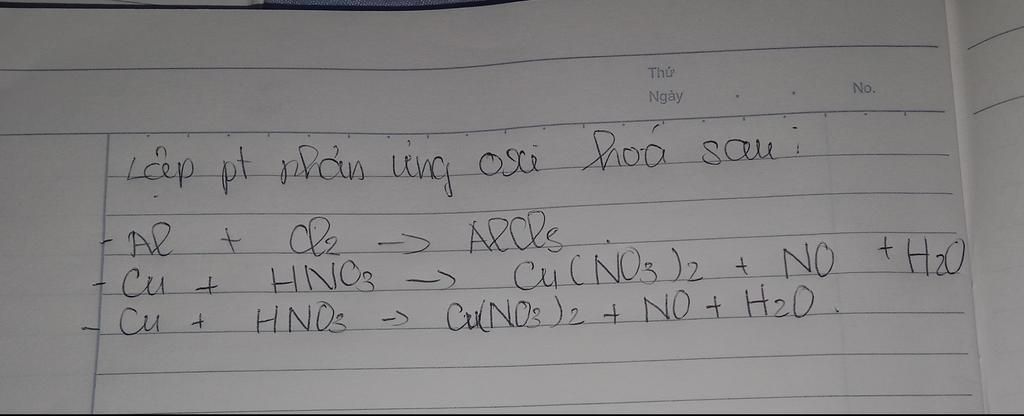 Thứ
Ngày . . No.
Lập pt phản ứng oxi hoá sau :
- Al + Cl2 -> AlCl3 .
- Cu + HNO3 -> Cu(NO3)2 + NO + H2O
- Cu + HNO3 -> Cu(NO3)2 + NO + H2O .